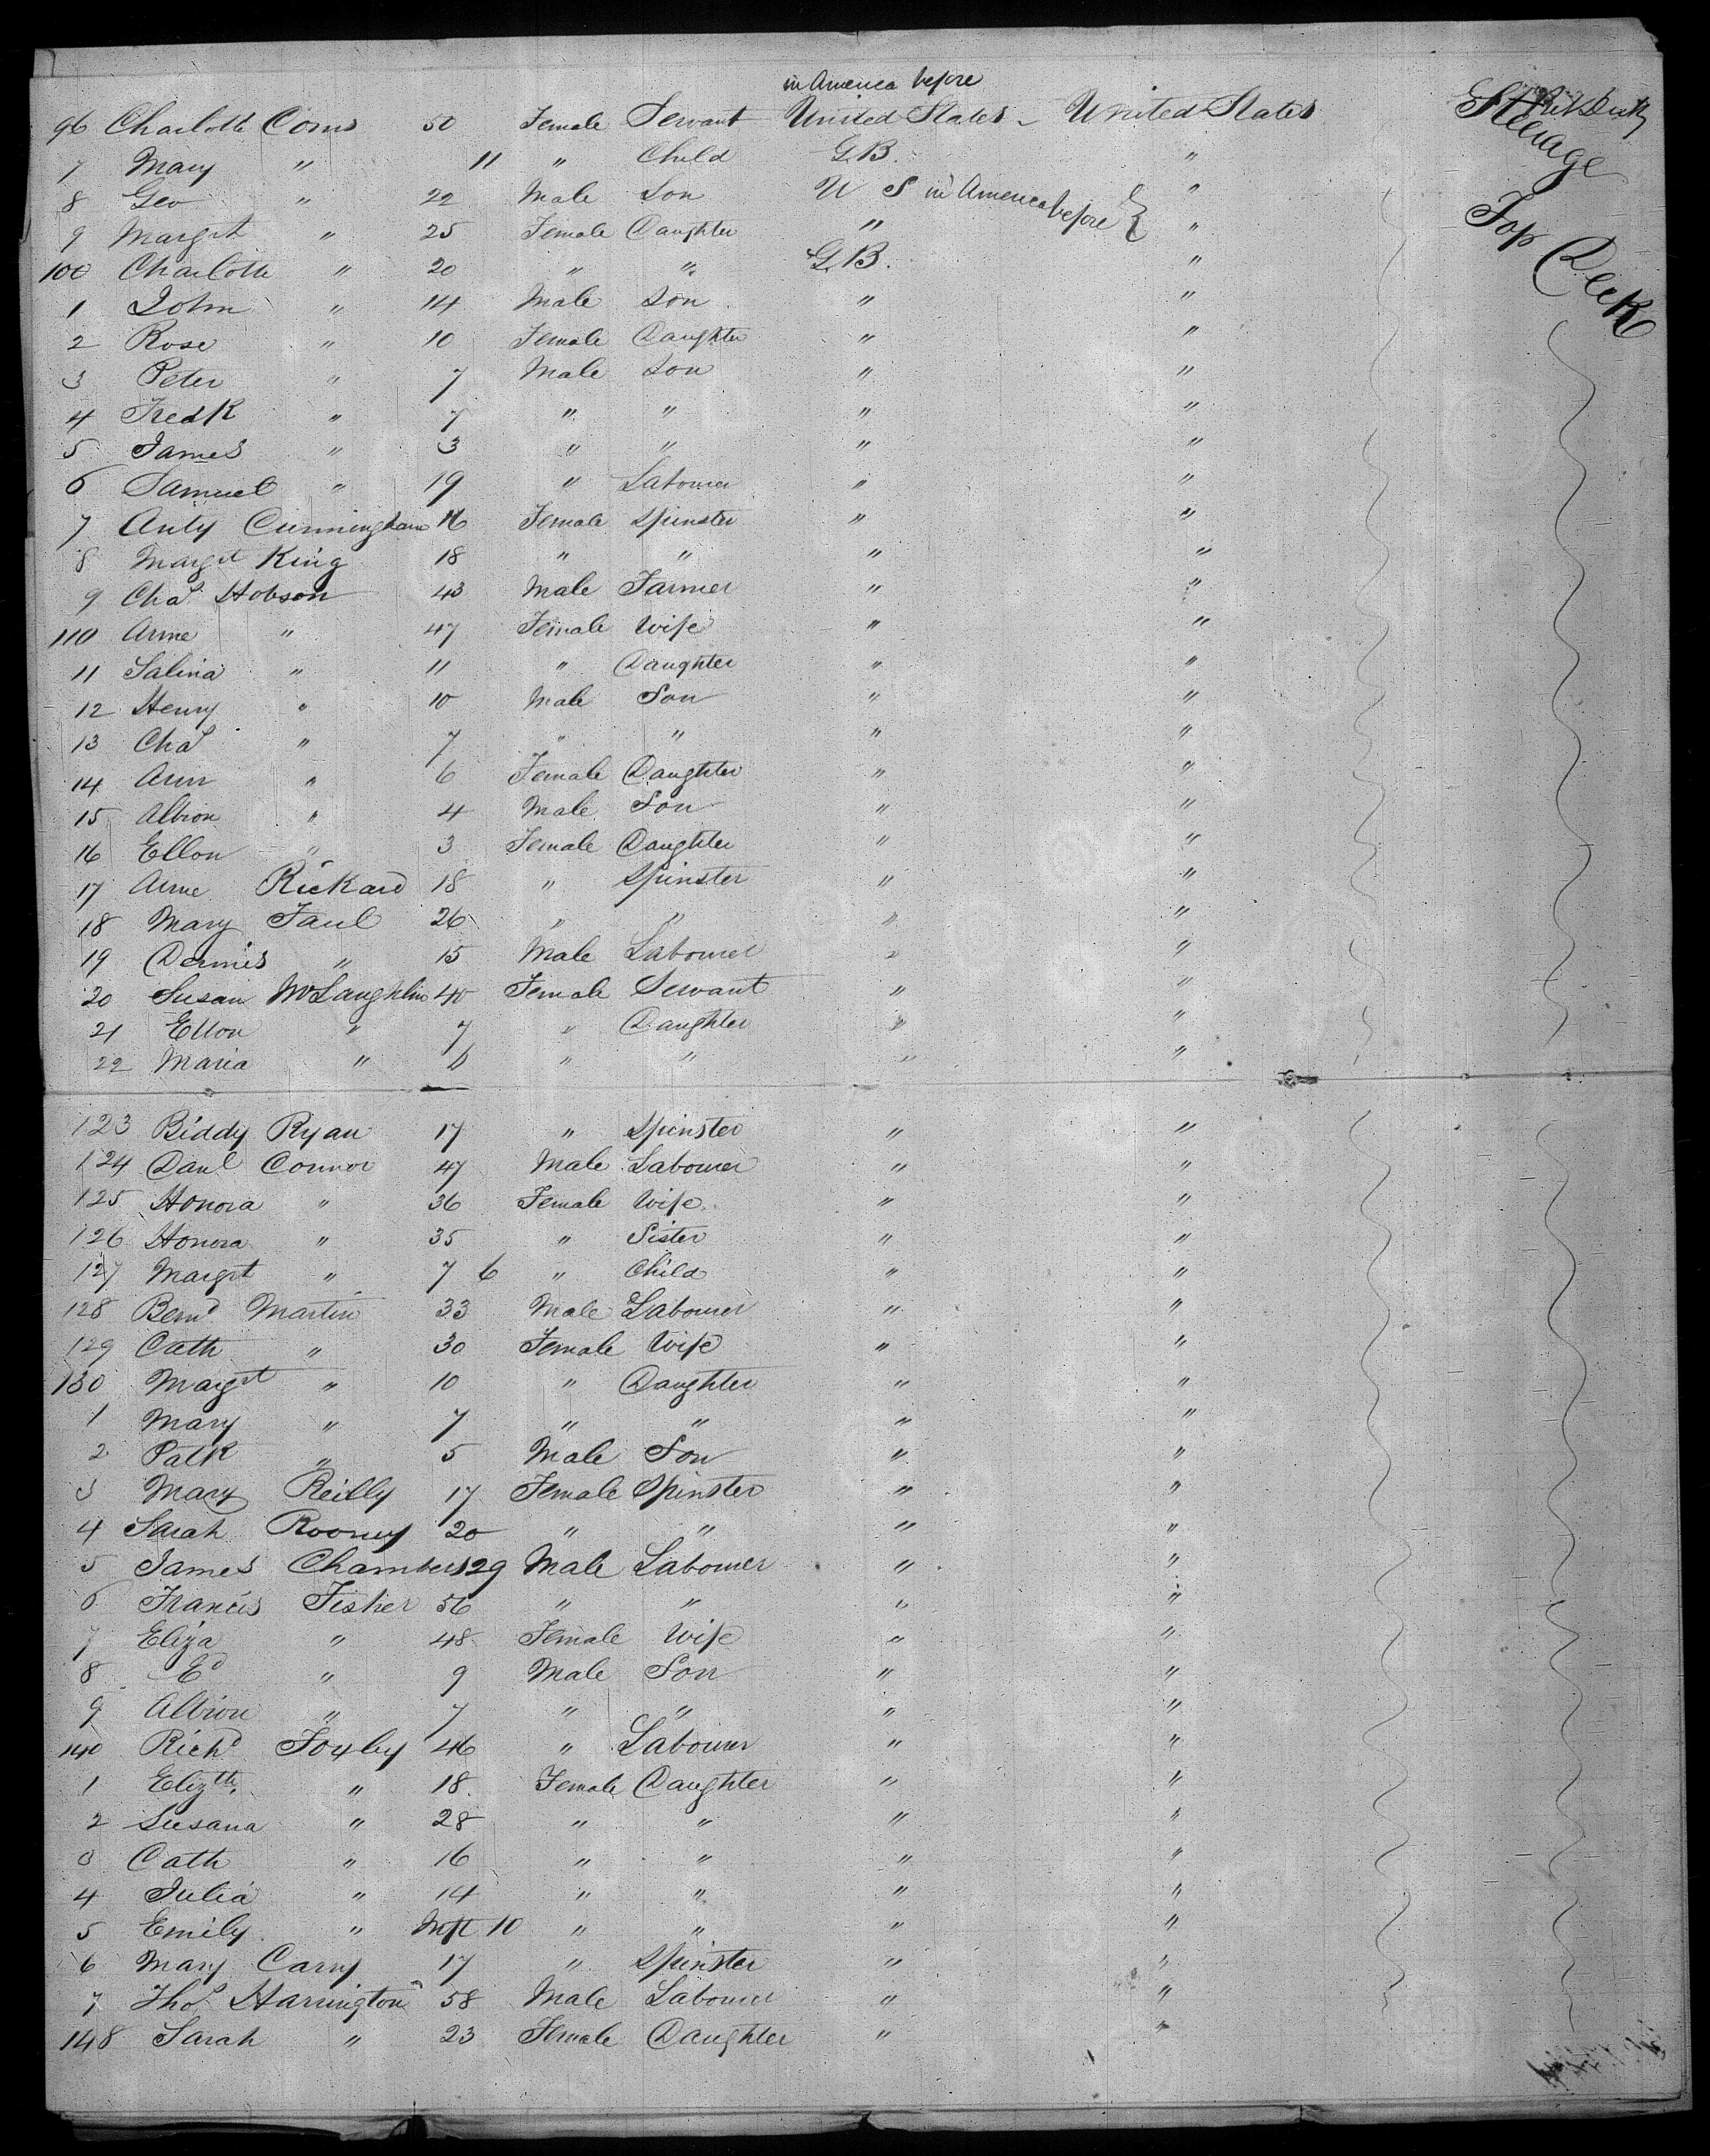 in America before
96 Charlotte Coms 50 Female Servant United States - United States Steerage
7 Mary " 11 " Child G.B. "
8 Geo " 22 Male Son U S in America before { "
9 Margrt " 25 Female Daughter " "
Top Deck
100 Charlotte " 20 " " G.B. "
1 John " 14 Male Son " "
2 Rose " 10 Female Daughter " "
3 Peter " 7 Male Son " "
4 Fredk " 7 " " " "
5 James " 3 " " " "
6 Samuel " 19 " Labourer " "
7 Anty Cunningham 16 Female Spinster " "
8 Margrt King 18 " " " "
9 Chas Hobson 43 Male Farmer " "
110 Anne " 47 Female Wife " "
11 Salina " 11 " Daughter " "
12 Henry " 10 Male Son " "
13 Chas " 7 " " " "
14 Ann " 6 Female Daughter " "
15 Albion " 4 Male Son " "
16 Ellon " 3 Female Daughter " "
17 Anne Rickard 18 " Spinster " "
18 Mary Faul 26 " " " "
19 Dennis " 15 Male Labourer " "
20 Susan McLaughlin 40 Female Servant " "
21 Ellon " 7 " Daughter " "
22 Maria " 6 " " " "
123 Biddy Ryan 17 " Spinster " "
124 Danl Connor 47 Male Labourer " "
125 Honora " 36 Female Wife " "
126 Honora " 35 " Sister " "
127 Margrt " 7 6 " Child " "
128 Bernd Martin 33 Male Labourer " "
129 Cath " 30 Female Wife " "
130 Margrt " 10 " Daughter " "
1 Mary " 7 " " " "
2 Patk " 5 Male Son " "
3 Mary Reilly 17 Female Spinster " "
4 Sarah Rooney 20 " " " "
5 James Chambers 29 Male Labourer " "
6 Francis Fisher 56 " " " "
7 Eliza " 48 Female Wife " "
8 Ed " 9 Male Son " "
9 Albion " 7 " " " "
140 Richd Foxley 46 " Labourer " "
1 Elizth " 18 Female Daughter " "
2 Susana " 28 " " " "
3 Cath " 16 " " " "
4 Julia " 14 " " " "
5 Emily " Inft 10 " " " "
6 Mary Carny 17 " Spinster " "
7 Thos Harrington 58 Male Labourer " "
148 Sarah " 23 Female Daughter " "